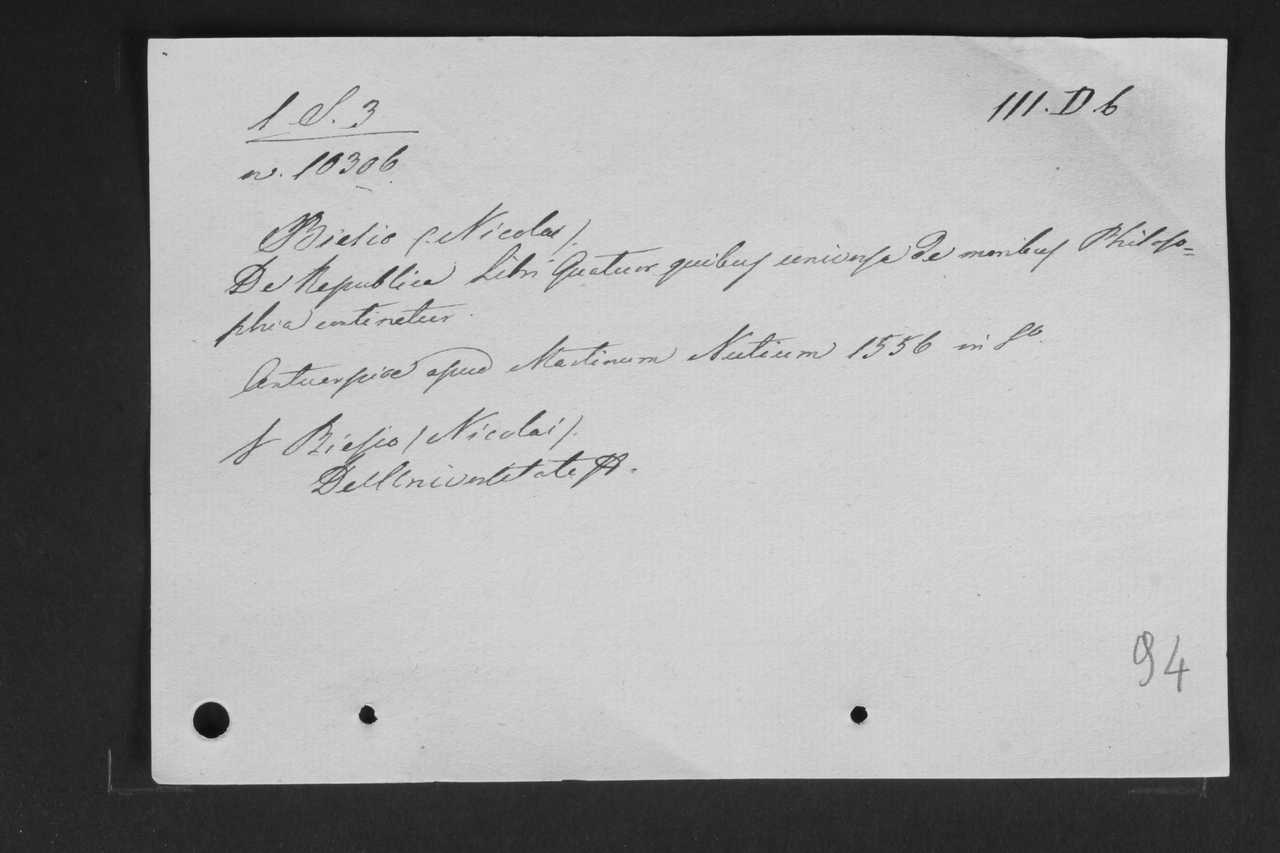 1 S. 3
III. D 6
n. 10306
Biesio (Nicolai).
De Republica Libri Quatuor quibus universa de moribus Philoso=
phia continetur.
Antuerpiae apud Martinum Nutium 1556 in 8o.
Biesio (Nicolai).
De Universitate
94